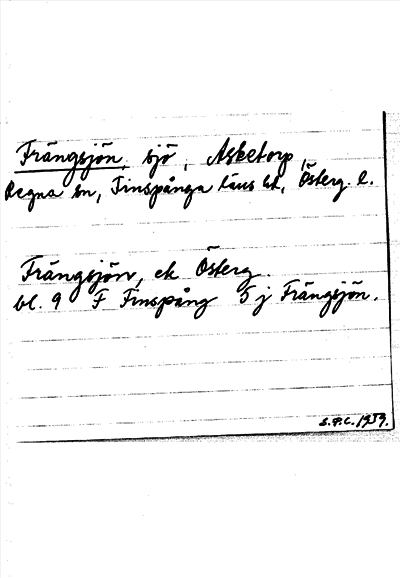 Frängsjön, sjö, Asketorp,
Regna sn, Finspånga läns hd, Österg. l.
Frängsjön, ek Österg.
bl. 9 F Finspång 5 j Frängsjön.
S.P.C. 1939.